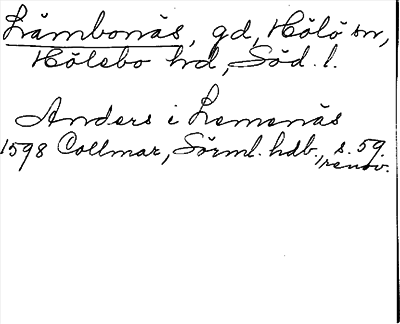 Lämbonäs, gd, Hölö sn,
Hölebo hd, Söd. l.
Anders i Lemenäs
1598 Collmar, Sörml. hdb., s. 59.
renov.